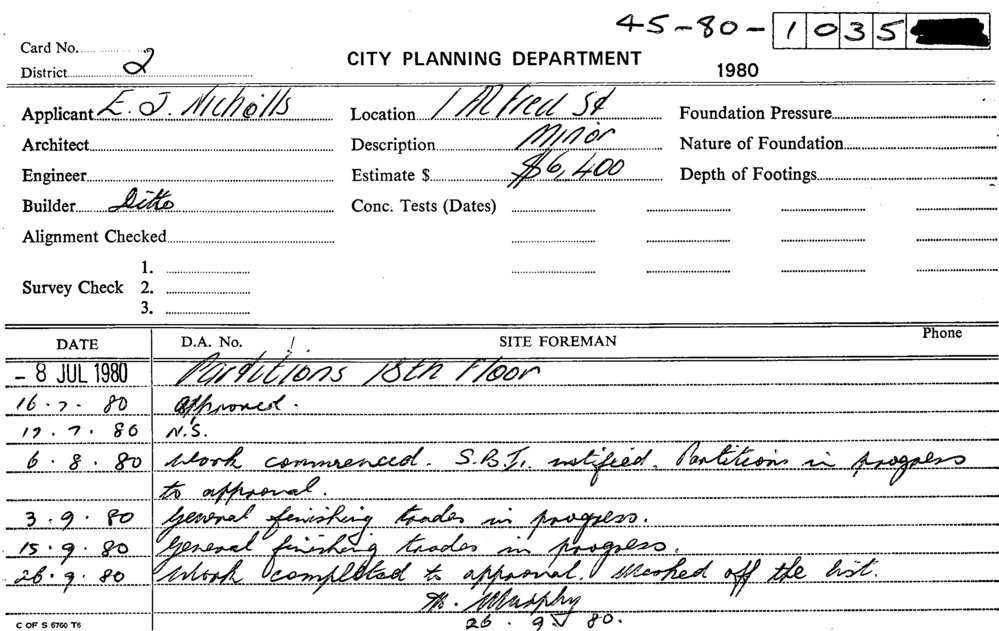 45-80-1035
Card No.
District 2
CITY PLANNING DEPARTMENT
1980
Applicant E. J. Nicholls
Location 1 Alfred St
Foundation Pressure
Architect
Description Minor
Nature of Foundation
Engineer
Estimate $ $6,400
Depth of Footings
Builder Ditto
Conc. Tests (Dates)
Alignment Checked
Survey Check
1.
2.
3.
DATE D.A. No. SITE FOREMAN Phone
- 8 JUL 1980 Partitions 18th Floor
16.7.80 approved.
17.7.80 N.S.
6.8.80 Work commenced. S.B.I. notified. Partitions in progress
to approval.
3.9.80 General finishing trades in progress.
15.9.80 General finishing trades in progress.
26.9.80 Work completed to approval. Marked off the list.
M. Murphy
26.9.80.
C OF S 6760 T6